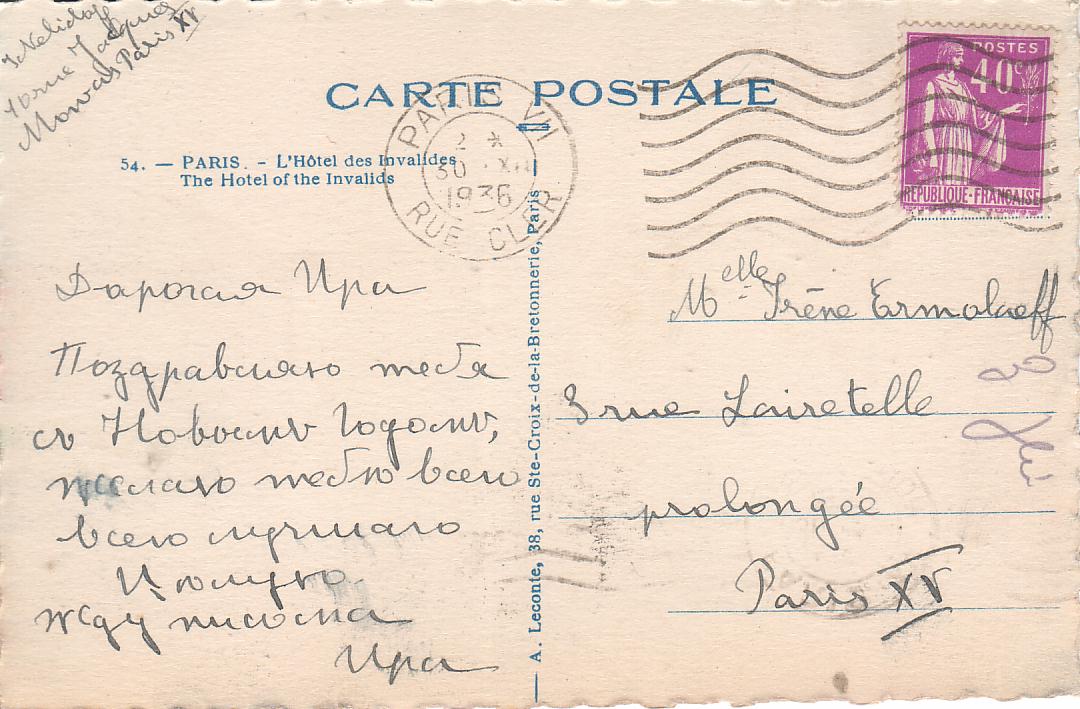 rue Jacques
Paris XV
CARTE POSTALE
54. — PARIS. - L'Hôtel des Invalides
The Hotel of the Invalids
PARIS VII
30 XII
1936
RUE CLER
POSTES
40c
REPUBLIQUE-FRANÇAISE
Дарогая Ира
Поздравляю тебя
съ Новымъ Годомъ,
желаю тебѣ всего
всего лучшаго
Цѣлую
жду письма
Ира
A. Leconte, 38, rue Ste-Croix-de-la-Bretonnerie, Paris
Melle Irène Ermolaeff
3 rue Lairetelle
prolongée
Paris XV